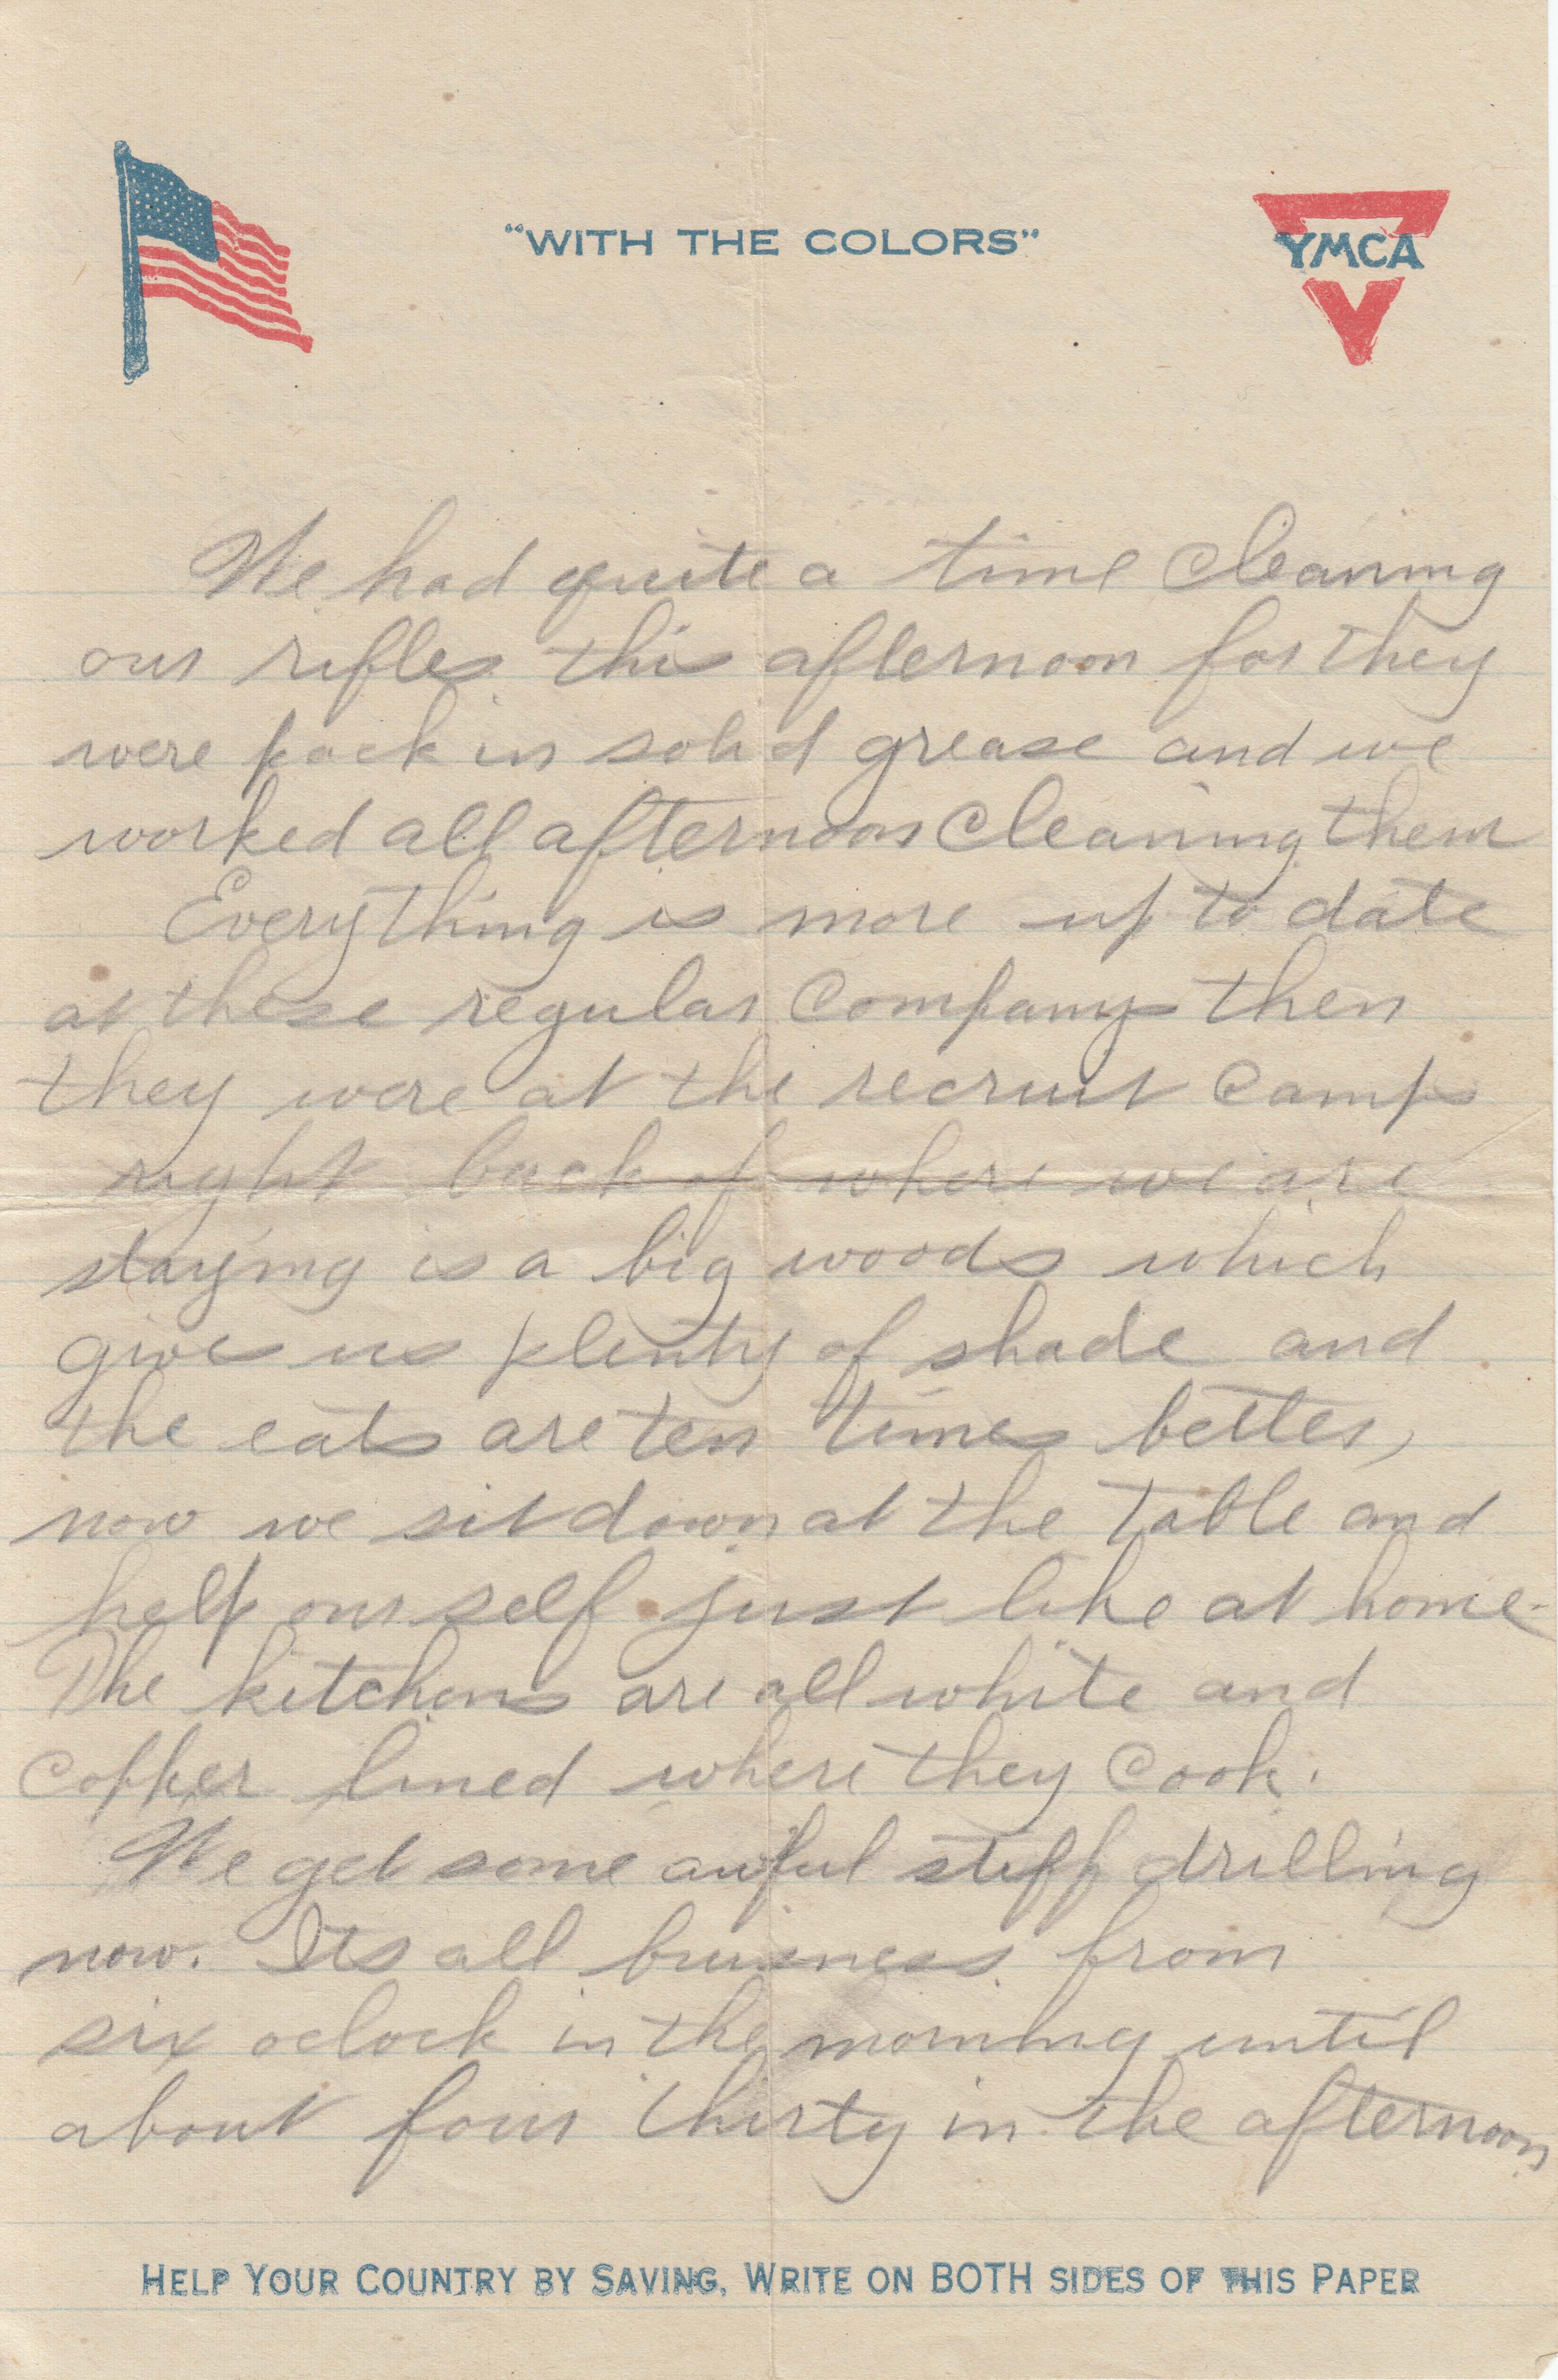 "WITH THE COLORS"
YMCA
We had quite a time cleaning
our rifles this afternoon for they
were pack in solid grease and we
worked all afternoon cleaning them
Everything is more up to date
at these regular Companys then
they were at the recruit camp
right back of where we are
staying is a big woods which
gives us plenty of shade and
the eats are ten times better,
now we sit down at the table and
help our self just like at home.
The kitchens are all white and
copper lined where they cook.
We get some awful stiff drilling
now. Its all business from
six oclock in the morning until
about four thirty in the afternoon
HELP YOUR COUNTRY BY SAVING, WRITE ON BOTH SIDES OF THIS PAPER